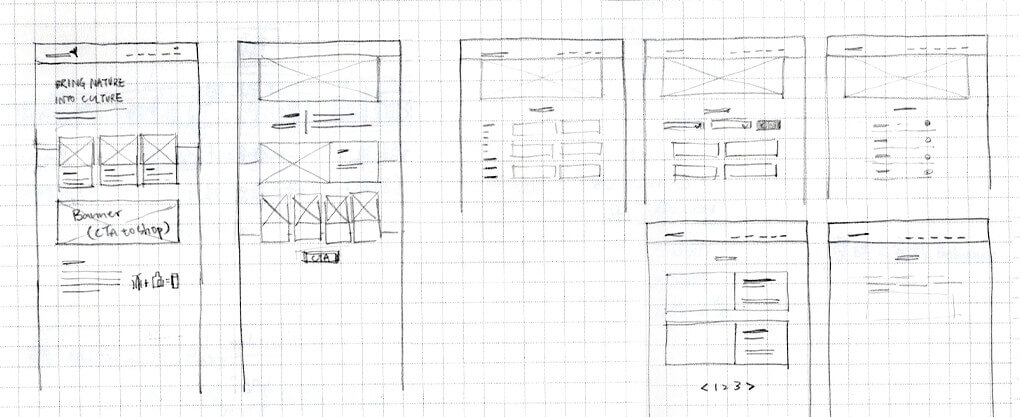 BRING NATURE
INTO CULTURE
Banner
(CTA to Shop)
CTA
< 1 2 3 >